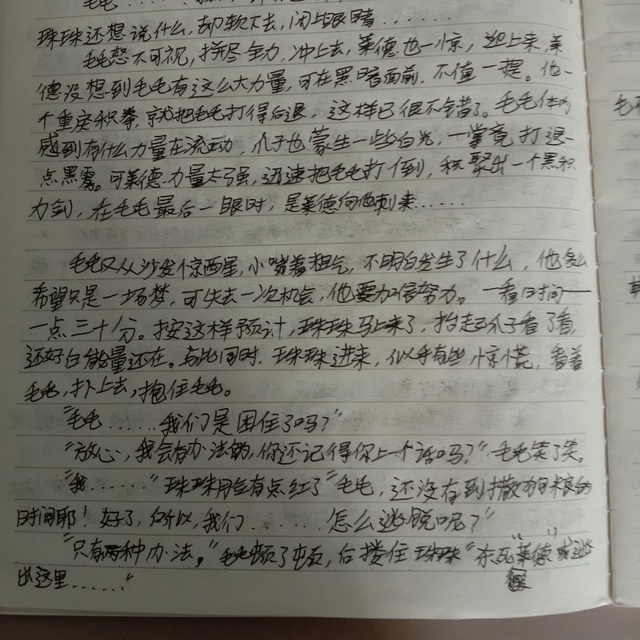 毛毛……
珠珠还想说什么，却软下去，闭上眼睛……
毛毛怒不可视，拼尽全力，冲上去，莱德也一惊，迎上来，莱
德没想到毛毛有这么大力量，可在黑暗面前，不值一提。他一
个重度积拳，就把毛毛打得后退，这样已很不错了。毛毛体内
感到有什么力量在流动，爪子也蒙生一些白光，一掌竟打退一
点黑雾。可莱德力量太强，迅速把毛毛打倒，积聚出一个黑积
力剑，在毛毛最后一眼时，是莱德向他刺来……
毛毛又从沙发惊西星，小喘着粗气，不明白发生了什么，他多么
希望只是一场梦，可失去一次机会，他要加倍努力。一看日时间——
一点三十分。按这样预计，珠珠马上来了，抬起爪子看了看，
还好白能量还在。与此同时，珠珠进来，似乎有些惊慌，看着
毛毛，扑上去，抱住毛毛。
“毛毛……我们是困住了吗？”
“放心，我会有办法的，你还记得你上一个话吗？”毛毛笑了笑。
“我……”珠珠脸有点红了“毛毛，还没有到撒狗粮的
时间耶！好了，所以，我们……怎么逃脱呢？”
“只有两种办法，”毛毛顿了顿，后搂住珠珠“杀死莱德或逃
出这里……”
毛